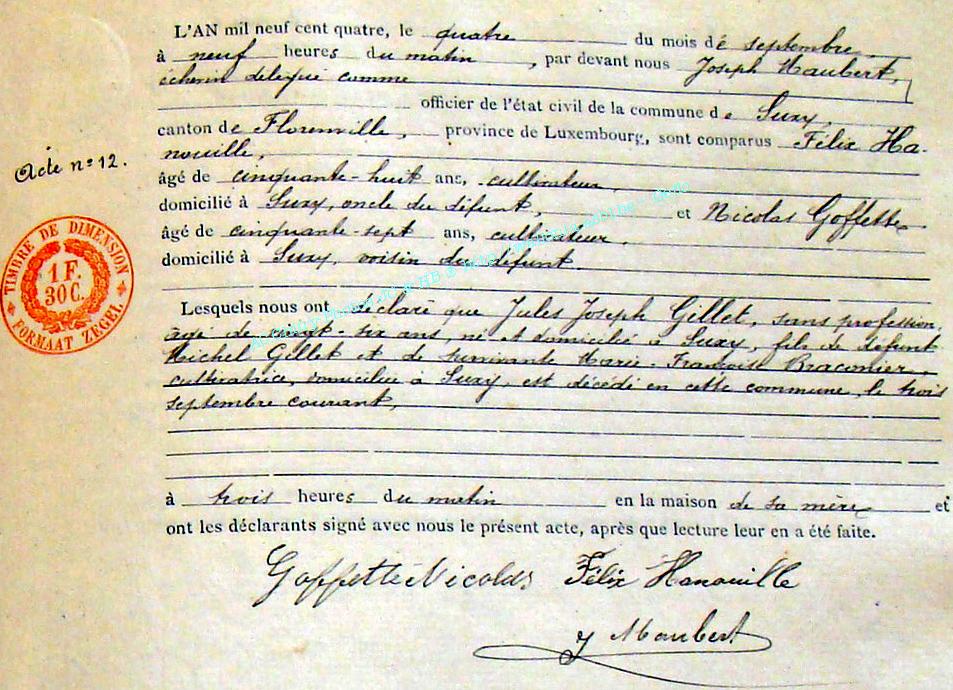 L'AN mil neuf cent quatre, le quatre du mois de septembre,
à neuf heures du matin, par devant nous Joseph Maubert,
échevin délégué comme
officier de l'état civil de la commune de Suxy,
canton de Florenville, province de Luxembourg, sont comparus Félix Ha-
nouille,
âgé de cinquante-huit ans, cultivateur,
domicilié à Suxy, oncle du défunt, et Nicolas Goffette
âgé de cinquante-sept ans, cultivateur,
domicilié à Suxy, voisin du défunt.
Acte n° 12.
TIMBRE DE DIMENSION
1 F.
30 C.
FORMAAT ZEGEL
Lesquels nous ont déclaré que Jules Joseph Gillet, sans profession,
âgé de vingt-six ans, né et domicilié à Suxy, fils de défunt
Michel Gillet et de survivante Marie-Françoise Braconier,
cultivatrice, domiciliée à Suxy, est décédé en cette commune, le trois
septembre courant,
à trois heures du matin en la maison de sa mère et
ont les déclarants signé avec nous le présent acte, après que lecture leur en a été faite.
Goffette Nicolas Félix Hanouille
J Maubert